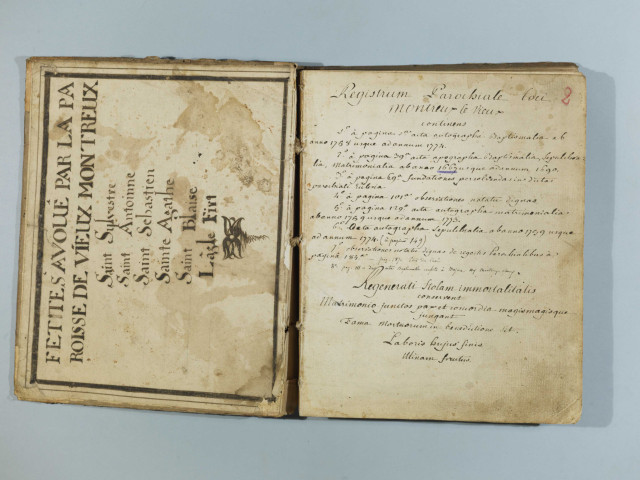 FETTES AVOUÉ PAR LA PA
ROISSE DE VIEUX MONTREUX
Saint Sylvestre
Saint Antoinne
Saint Sebastien
Sainte Agathe
Saint Blaise
2
Registrum Parochiale loci
Montreux le Vieux
continens
1º a pagina acta autographa baptismalia ab
anno usque ad annum 1774.
2º à pagina 39ª acta apographa baptismalia, sepulchra-
lia, Matrimonialia ab anno usque ad annum 1690.
3º à pagina 69ª fundationes persolvendas in dicta
parochiali
4º à pagina 101ª observationes notatu dignas
5º à pagina 129ª acta autographa matrimonialia
ab anno 1759 usque ad annum 1773.
6º acta autographa sepulchralia ab anno 1759 usque
ad annum 1774. (à pagina 149)
7º observationes notatu dignas de regestis Parochialibus à
pagina
Regenerati Stolam immortalitatis
conservent
Matrimonio junctos pax et concordia magis magisque
jungant
Fama mortuorum in benedictione sit.
Laboris hujus finis
Utinam fructus